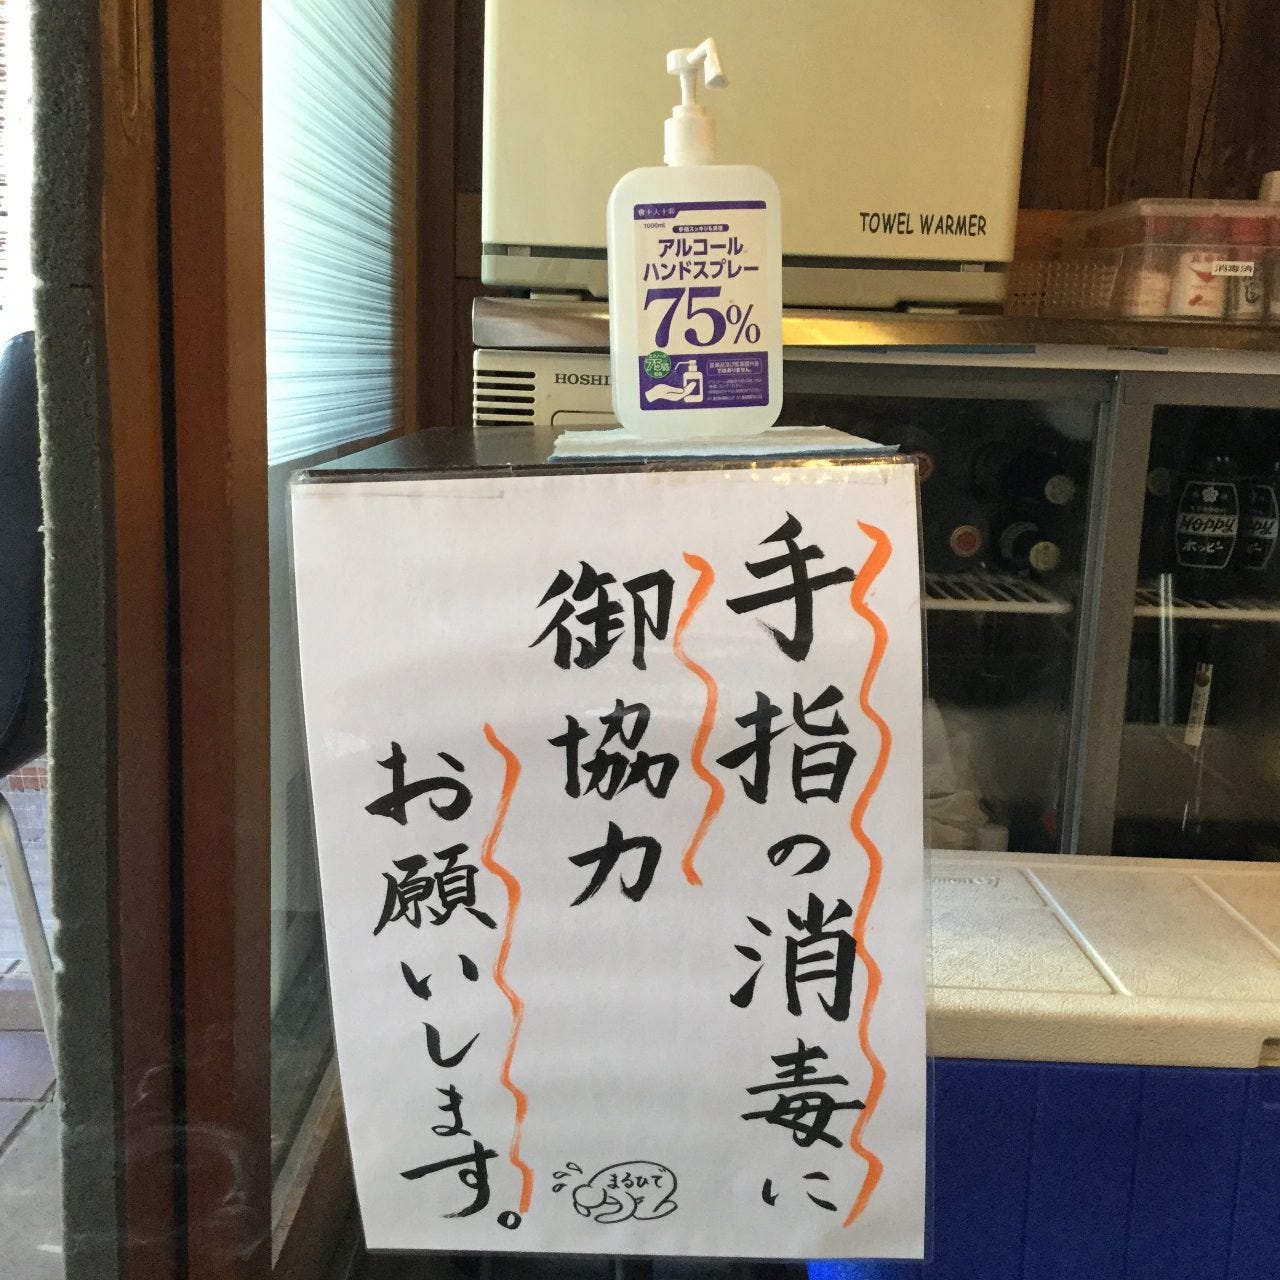 TOWEL WARMER
十人十彩
1000ml
手指スッキリ&清潔
アルコール
ハンドスプレー
75%
エタノール
75%
医薬品及び医薬部外品
ではありません。
HOSHI
消毒済
Hoppy
ホッピー
手指の消毒に
御協力
お願いします。
まるひで